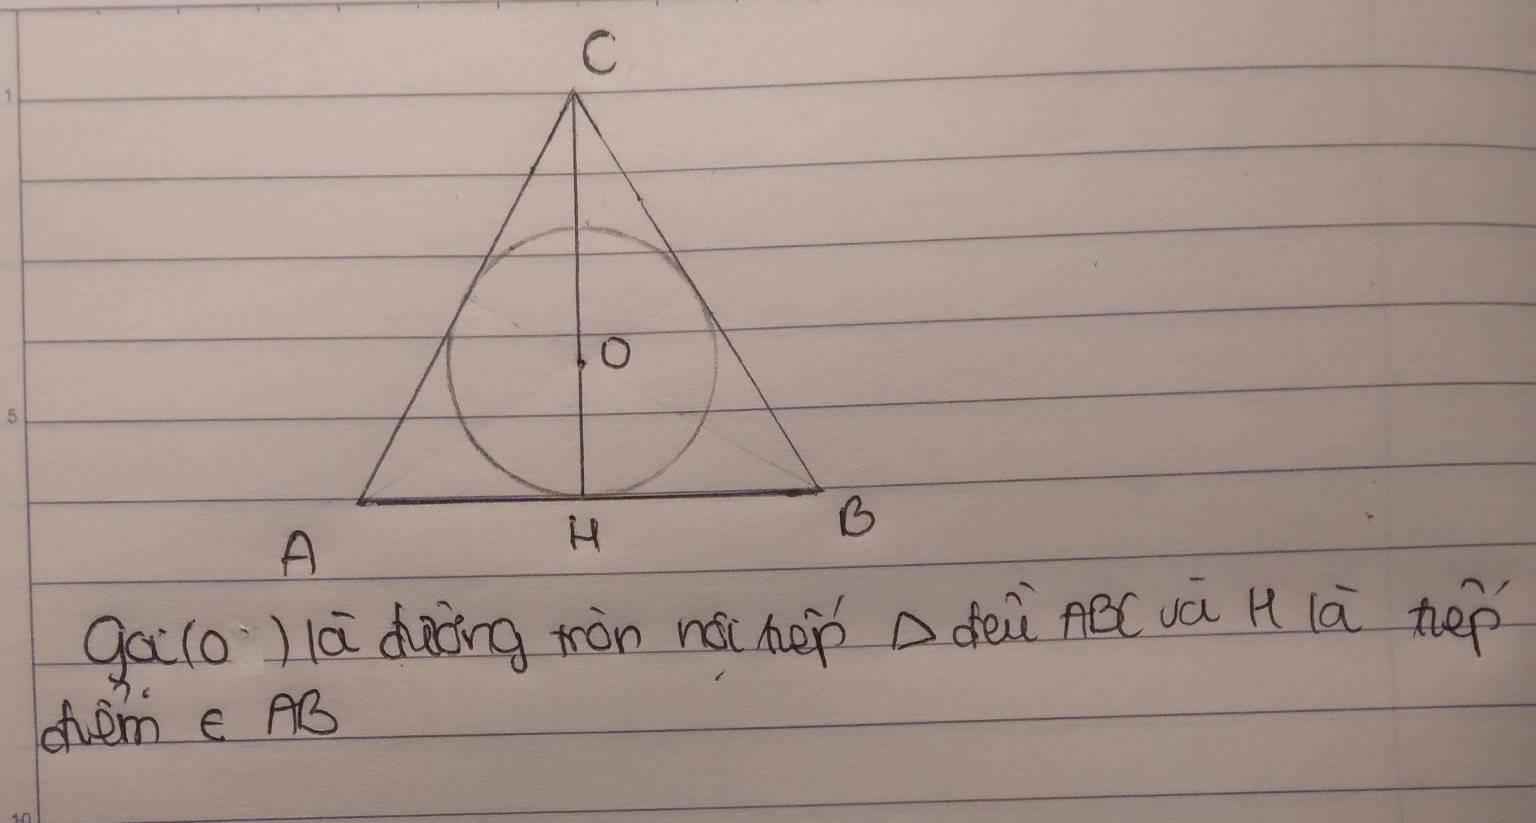 C
1
O
5
A
H
B
Gọi (O) là đường tròn nội tiếp Δ đều ABC và H là tiếp
điểm ∈ AB
10